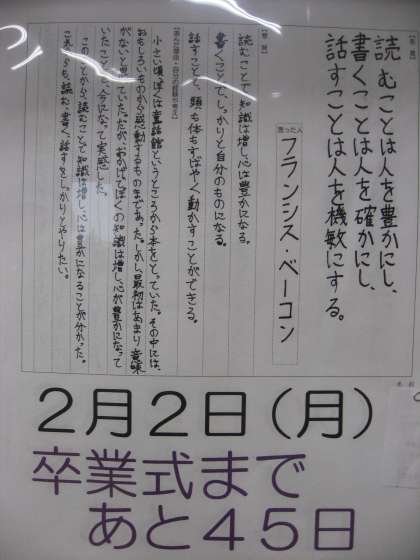 【名言】
読むことは人を豊かにし、
書くことは人を確かにし、
話すことは人を機敏にする。
言った人
フランシス・ベーコン
【意味】
読むことで知識は増し心は豊かになる。
書くことでしっかりと自分のものになる。
話すことで、頭も体もすばやく動かすことができる。
【選んだ理由・自分の経験や考え】
小さい頃ぼくは童話館というところから本をとっていた。その中には、
おもしろいものから感動するものまであった。しかし最初はあまり意味
がないと思っていた。だが、おかげでぼくの知識は増し、心が豊かになって
いたことに、今になって実感した。
このことから、読むことで知識は増し、心は豊かになることが分かった。
これからも、読む、書く、話すをしっかりとやりたい。
2月2日(月)
卒業式まで
あと45日